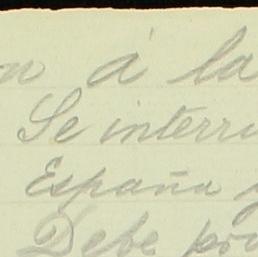 á la
Se interru
España y
Debe pro